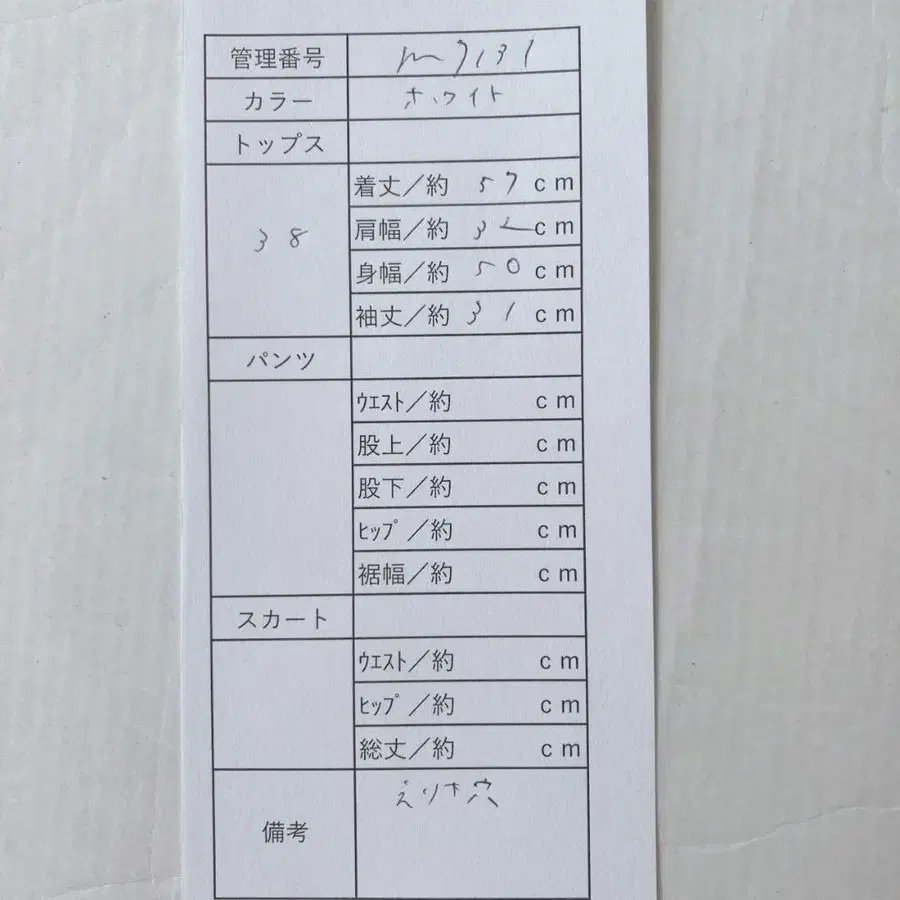 管理番号 m7131
カラー ホワイト
トップス
38
着丈／約 57 cm
肩幅／約 32 cm
身幅／約 50 cm
袖丈／約 31 cm
パンツ
ウエスト／約 cm
股上／約 cm
股下／約 cm
ヒップ／約 cm
裾幅／約 cm
スカート
ウエスト／約 cm
ヒップ／約 cm
総丈／約 cm
備考 穴